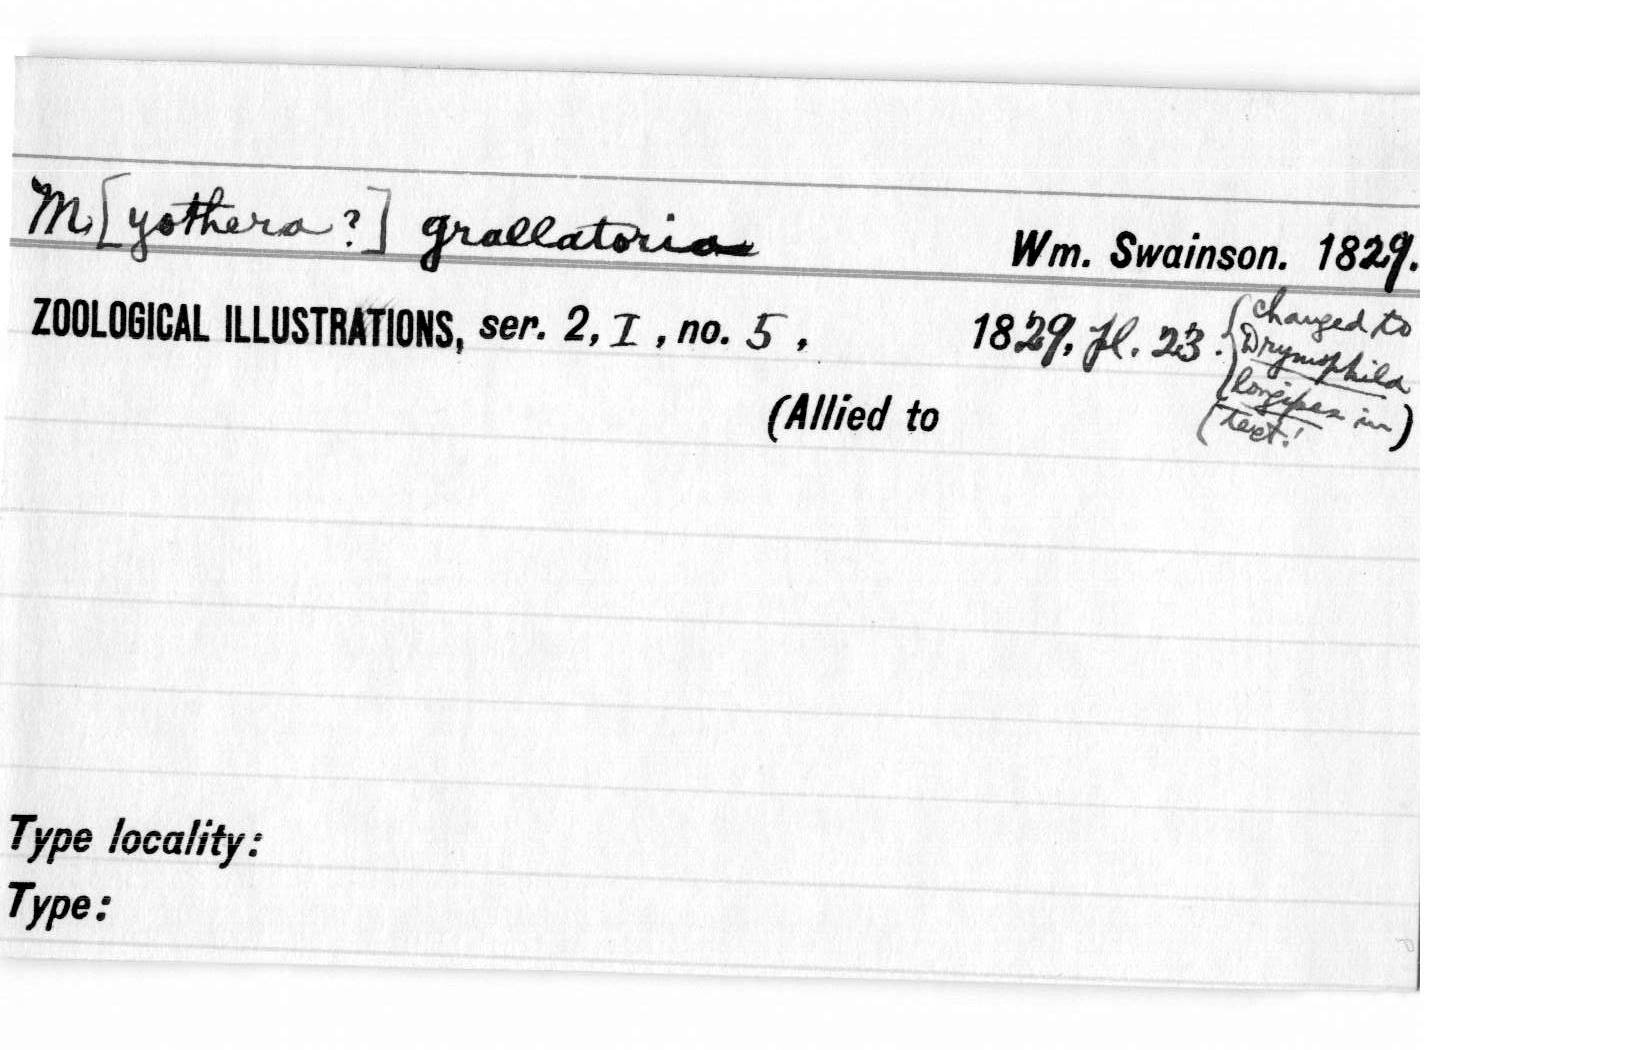 M[yothera?] grallatoria
Wm. Swainson. 1829.
ZOOLOGICAL ILLUSTRATIONS, ser. 2, I, no. 5, 1829, pl. 23.
(Allied to )
{changed to
Drymophila
longipes in
(text!
Type locality:
Type: